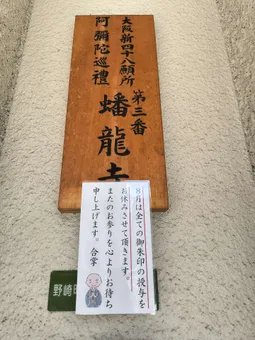 大阪新四十八願所
第三番
阿彌陀巡禮
蟠龍寺
8月は全ての御朱印の授与を
お休みさせて頂きます。
またのお参りを心よりお待ち
申し上げます。 合掌
野崎